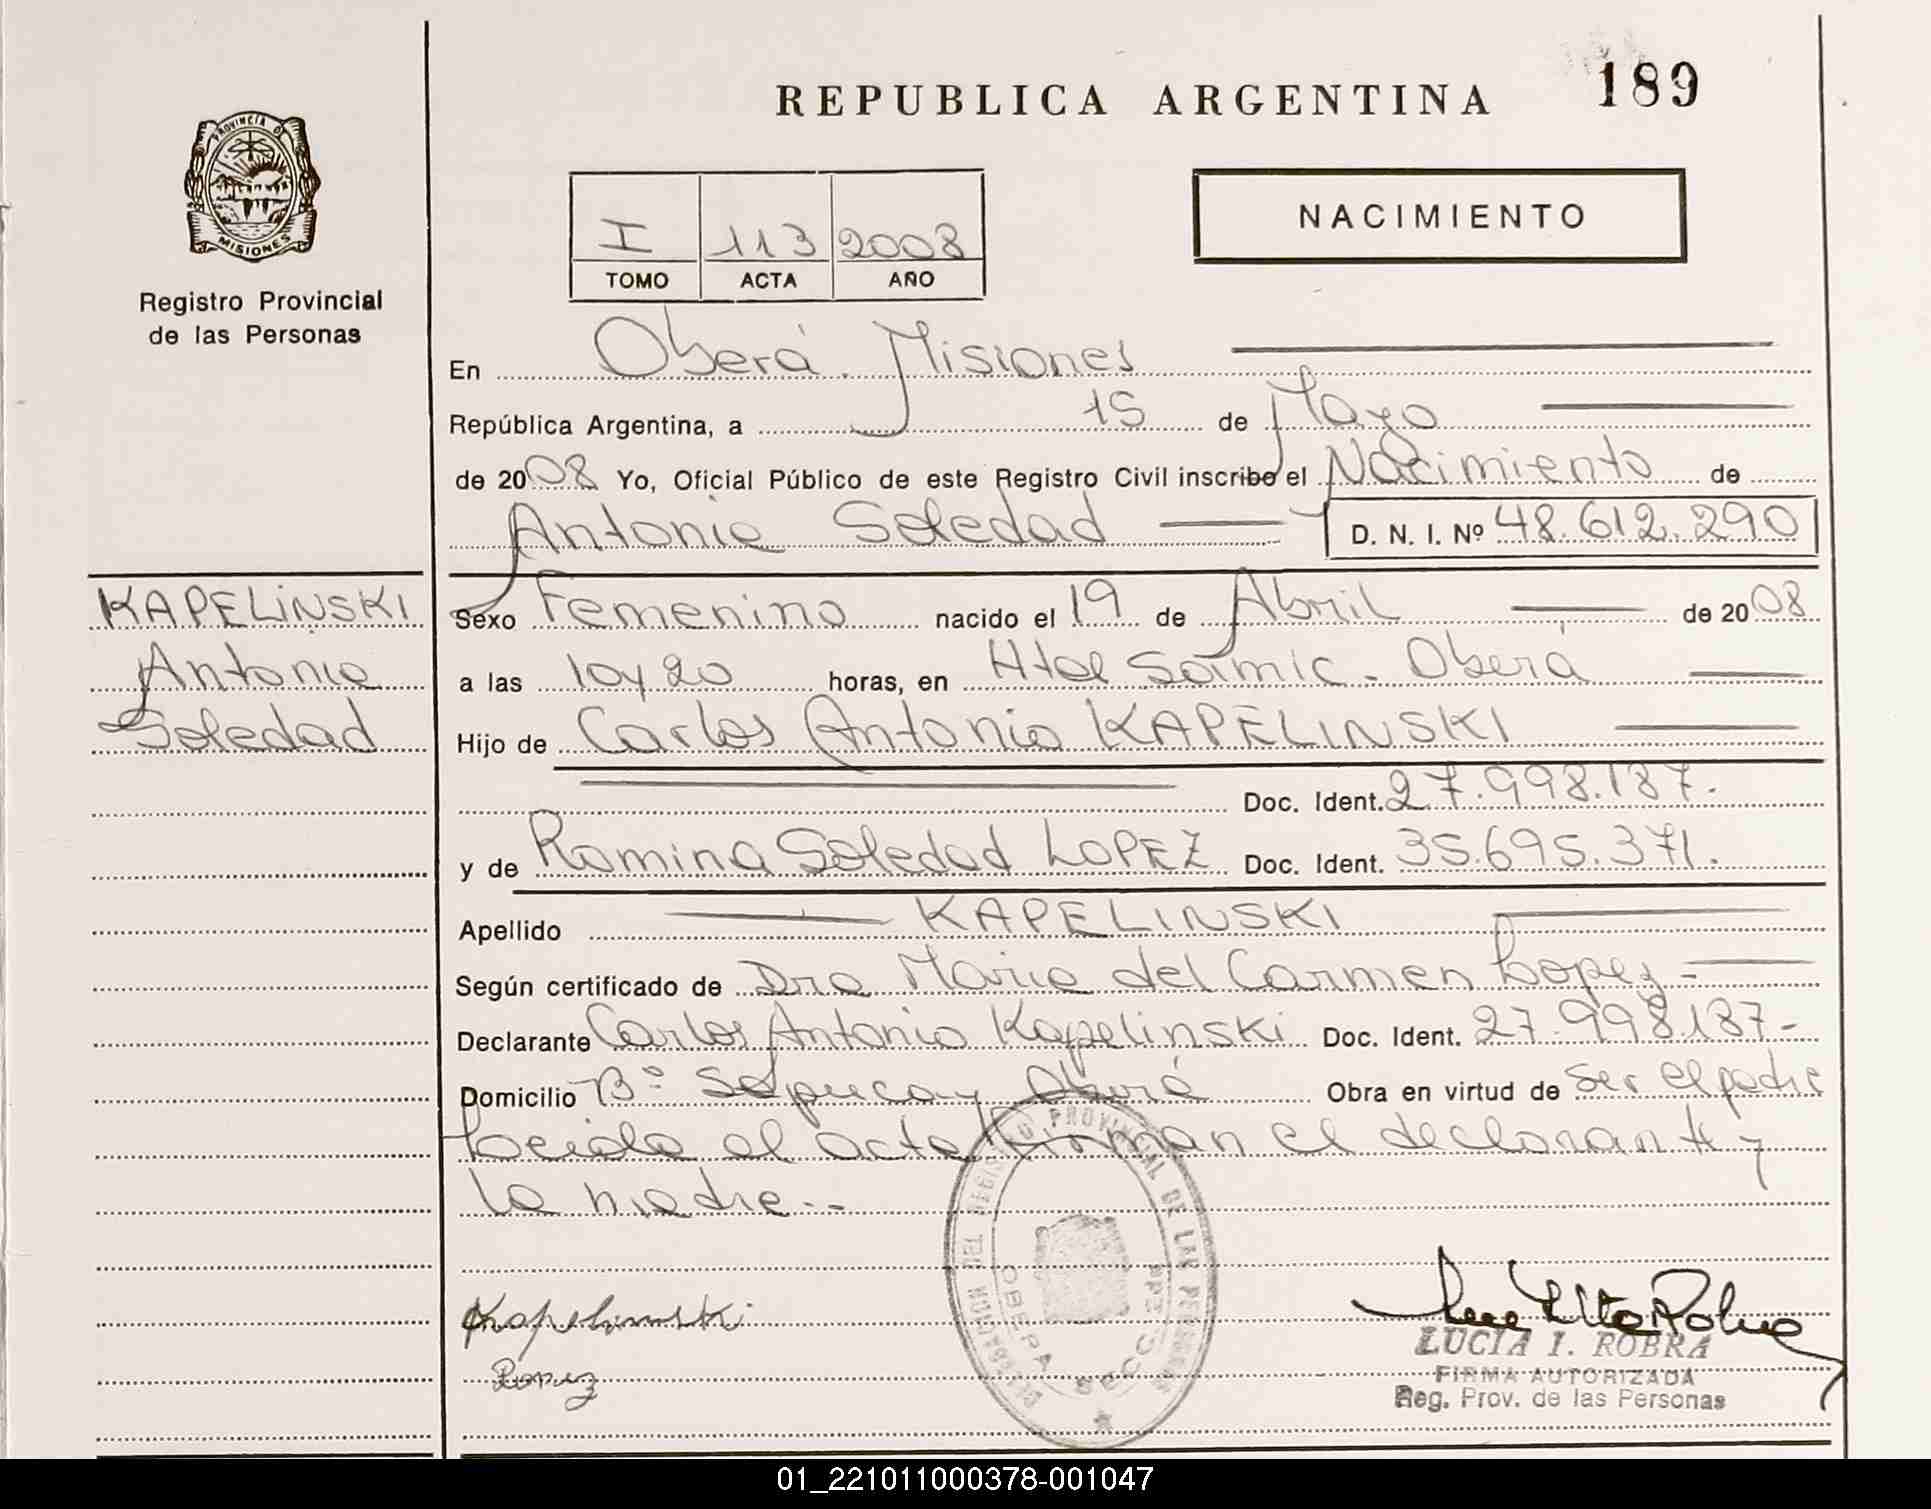 REPUBLICA ARGENTINA
189
PROVINCIA D
MISIONES
Registro Provincial
de las Personas
I 113 2008
TOMO ACTA AÑO
NACIMIENTO
En Oberá. Misiones
República Argentina, a 15 de Mayo
de 2008 Yo, Oficial Público de este Registro Civil inscribo el Nacimiento de
Antonia Soledad D. N. I. Nº 48.612.290
KAPELINSKI
Antonia
Soledad
Sexo Femenino nacido el 19 de Abril de 2008
a las 10y20 horas, en Htal Samic. Oberá
Hijo de Carlos Antonio KAPELINSKI
Doc. Ident. 27.998.187.
y de Romina Soledad LOPEZ Doc. Ident. 35.695.371.
Apellido KAPELINSKI
Según certificado de Dra Maria del Carmen Lopez -
Declarante Carlos Antonio Kapelinski Doc. Ident. 27.998.187-
Domicilio Bº Sapucay Oberá Obra en virtud de ser el padre
Leida el acta firman el declarante y
la madre.-
DELEGACION DEL REGISTRO PROVINCIAL DE LAS PERSONAS
OBERA
SECC.
Kapelinski
Lopez
LUCIA I. ROBRA
FIRMA AUTORIZADA
Reg. Prov. de las Personas
01_221011000378-001047